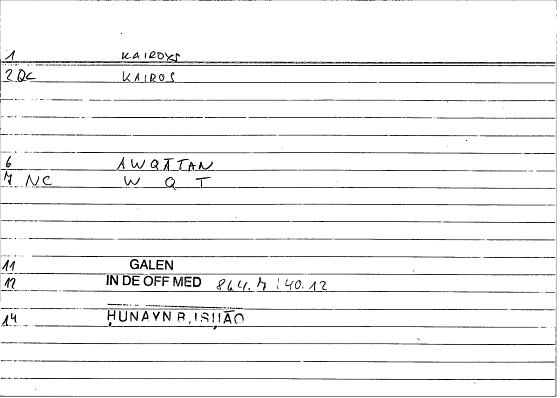 1 KAIROS
2 QC KAIROS
6 AWQĀTAN
7 NC W Q T
11 GALEN
12 IN DE OFF MED 864.7 : 40.12
14 ḤUNAYN B. ISḤĀQ